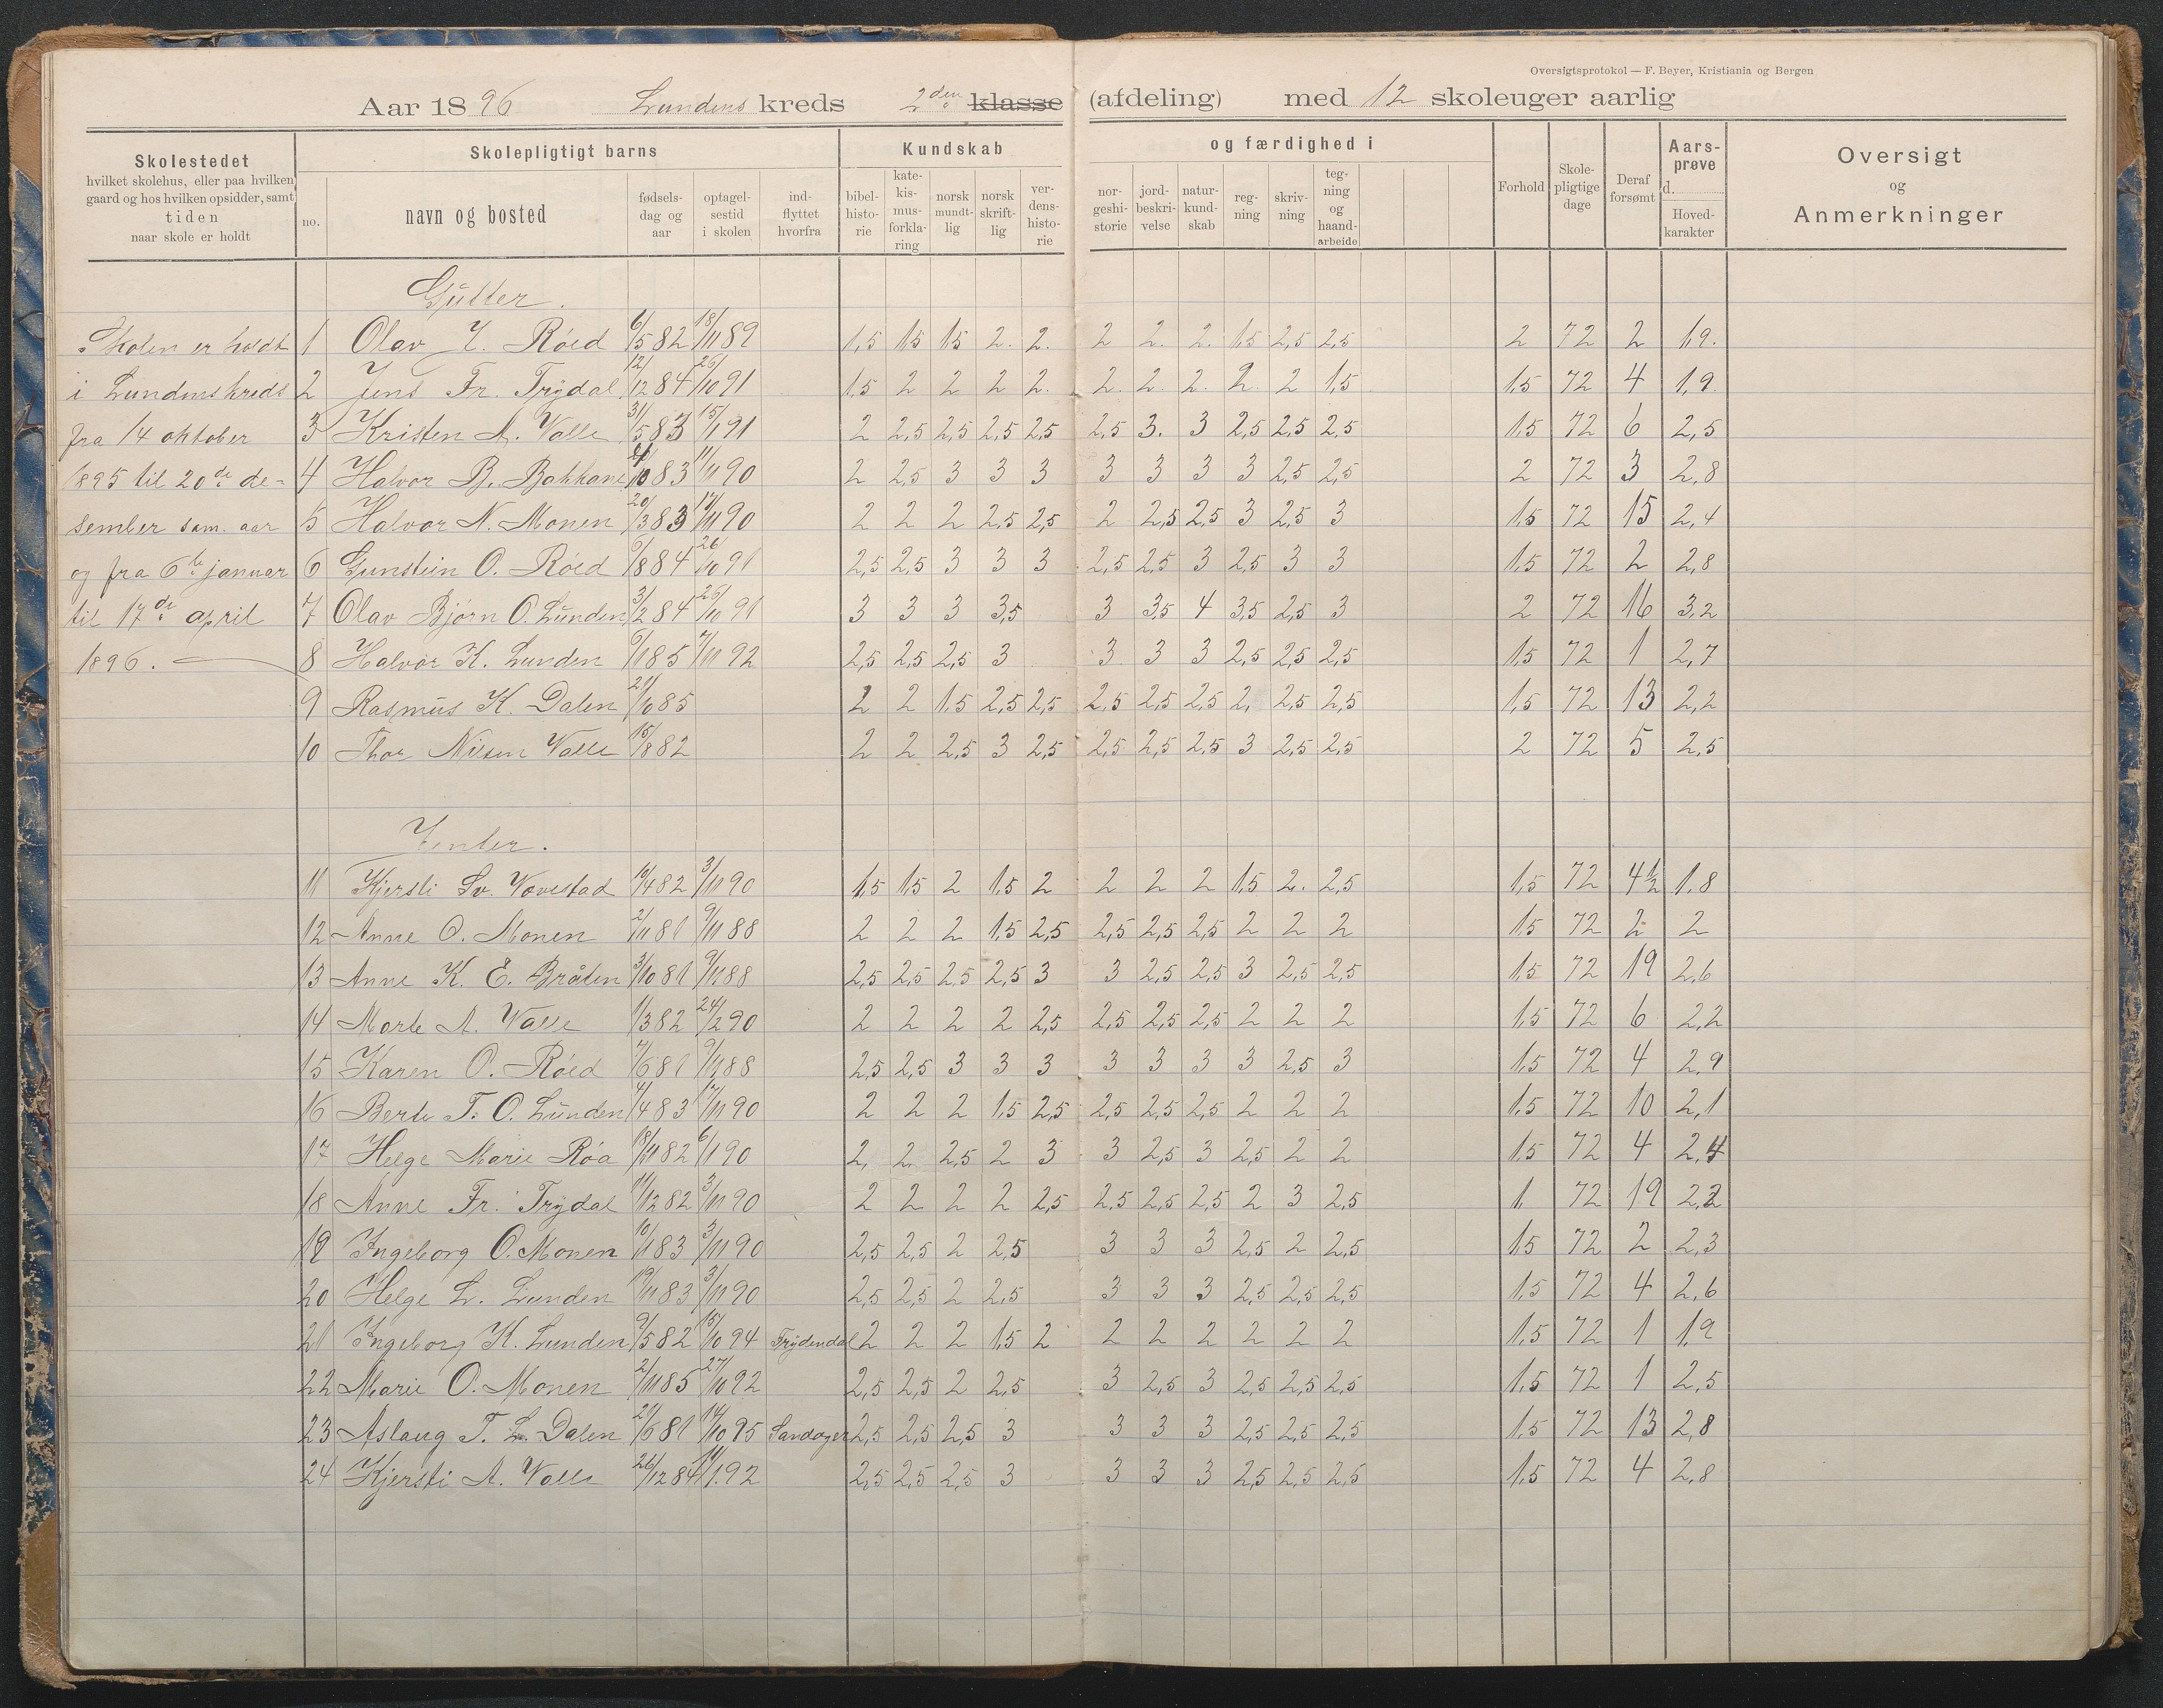 Oversigtsprotokol — F. Beyer, Kristiania og Bergen
Aar 1896 Lundens kreds 2den klasse (afdeling) med 12 skoleuger aarlig
Skolestedet
hvilket skolehus, eller paa hvilken
gaard og hos hvilken opsidder, samt
tiden
naar skole er holdt
Skolepligtigt barns
no.
navn og bosted
fødsels-
dag og
aar
optagel-
sestid
i skolen
ind-
flyttet
hvorfra
Kundskab og færdighed i
bibel-
histo-
rie
kate-
kis-
mus-
forkla-
ring
norsk
mundt-
lig
norsk
skrift-
lig
ver-
dens-
histo-
rie
nor-
geshi-
storie
jord-
beskri-
velse
natur-
kund-
skab
reg-
ning
skriv-
ning
teg-
ning
og
haand-
arbeide
Forhold
Skole-
pligtige
dage
Deraf
forsømt
Aars-
prøve
d.
Hoved-
karakter
Oversigt
og
Anmerkninger
Skolen er holdt
i Lundens kreds
fra 14 oktober
1895 til 20de de-
sember sam. aar
og fra 6te januar
til 17de april
1896.
Gutter.
1 Olav J. Röed 6/5 82 18/11 89 1,5 1,5 1,5 2. 2. 2 2. 2. 1,5 2,5 2,5 2 72 2 1,9.
2 Jens Fr. Trydal 12/12 84 26/10 91 1,5 2 2 2 2. 2. 2. 2. 2. 2 1,5 1,5 72 4 1,9.
3 Kristen A. Valle 31/5 83 15/1 91 2 2,5 2,5 2,5 2,5 2,5 3. 3 2,5 2,5 2,5 1,5 72 6 2,5
4 Halvor B. Bakkane 83 11/11 90 2 2,5 3 3 3 3 3 3 3 2,5 2,5 2 72 3 2,8
5 Halvor N. Monen 20/3 83 17/11 90 2 2 2 2,5 2,5 2 2,5 2,5 3 2,5 3 1,5 72 15 2,4
6 Gunstein O. Röed 6/8 84 26/10 91 2,5 2,5 3 3 3 2,5 2,5 3 2,5 3 3 1,5 72 2 2,8
7 Olav Bjørn O. Lunden 3/2 84 26/10 91 3 3 3 3,5 3 3,5 4 3,5 2,5 3 2 72 16 3,2
8 Halvor K. Lunden 6/1 85 7/11 92 2,5 2,5 2,5 3 3 3 3 2,5 2,5 2,5 1,5 72 1 2,7
9 Rasmus K. Dalen 21/10 85 2 2 1,5 2,5 2,5 2,5 2,5 2,5 2, 2,5 2,5 1,5 72 13 2,2
10 Thor Nilsen Valle 15/8 82 2 2 2,5 3 2,5 2,5 2,5 2,5 3 2,5 2,5 2 72 5 2,5
Jenter.
11 Kjersti Sv. Vovestad 16/4 82 3/11 90 1,5 1,5 2 1,5 2 2 2 2 1,5 2. 2,5 1,5 72 4½ 1,8
12 Anne O. Monen 2/11 81 9/11 88 2 2 2 1,5 2,5 2,5 2,5 2,5 2 2 2 1,5 72 2 2
13 Anne K. E. Bråten 3/10 81 9/11 88 2,5 2,5 2,5 2,5 3 3 2,5 2,5 3 2,5 2,5 1,5 72 19 2,6
14 Marte A. Valle 1/3 82 24/2 90 2 2 2 2 2,5 2,5 2,5 2,5 2 2 2 1,5 72 6 2,2
15 Karen O. Röed 7/6 81 9/11 88 2,5 2,5 3 3 3 3 3 3 3 2,5 3 1,5 72 4 2,9
16 Berte T. O. Lunden 4/4 83 17/11 90 2 2 2 1,5 2,5 2,5 2,5 2,5 2 2 2 1,5 72 10 2,1
17 Helge Marie Röa 18/11 82 6/1 90 2, 2 2,5 2 3 3 2,5 3 2,5 2 2 1,5 72 4 2,4
18 Anne Fr. Trydal 11/12 82 3/11 90 2 2 2 2 2,5 2,5 2,5 2,5 2 3 2,5 1, 72 19 2,2
19 Ingeborg O. Monen 10/1 83 3/11 90 2,5 2,5 2 2,5 3 3 3 2,5 2 2,5 1,5 72 2 2,3
20 Helge L. Lunden 19/11 83 3/11 90 2,5 2,5 2 2,5 3 3 3 2,5 2,5 2,5 1,5 72 4 2,6
21 Ingeborg K. Lunden 9/5 82 15/10 94 Trydendal 2 2 2 1,5 2 2 2 2 2 2 2 1,5 72 1 1,9
22 Marie O. Monen 2/11 85 27/10 92 2,5 2,5 2 2,5 3 2,5 3 2,5 2,5 2,5 1,5 72 1 2,5
23 Aslaug T. L. Dalen 21/6 81 14/10 95 Sandager 2,5 2,5 2,5 3 3 3 3 2,5 2,5 2,5 1,5 72 13 2,8
24 Kjersti A. Valle 26/12 84 11/1 92 2,5 2,5 2,5 3 3 3 3 2,5 2,5 2,5 1,5 72 4 2,8